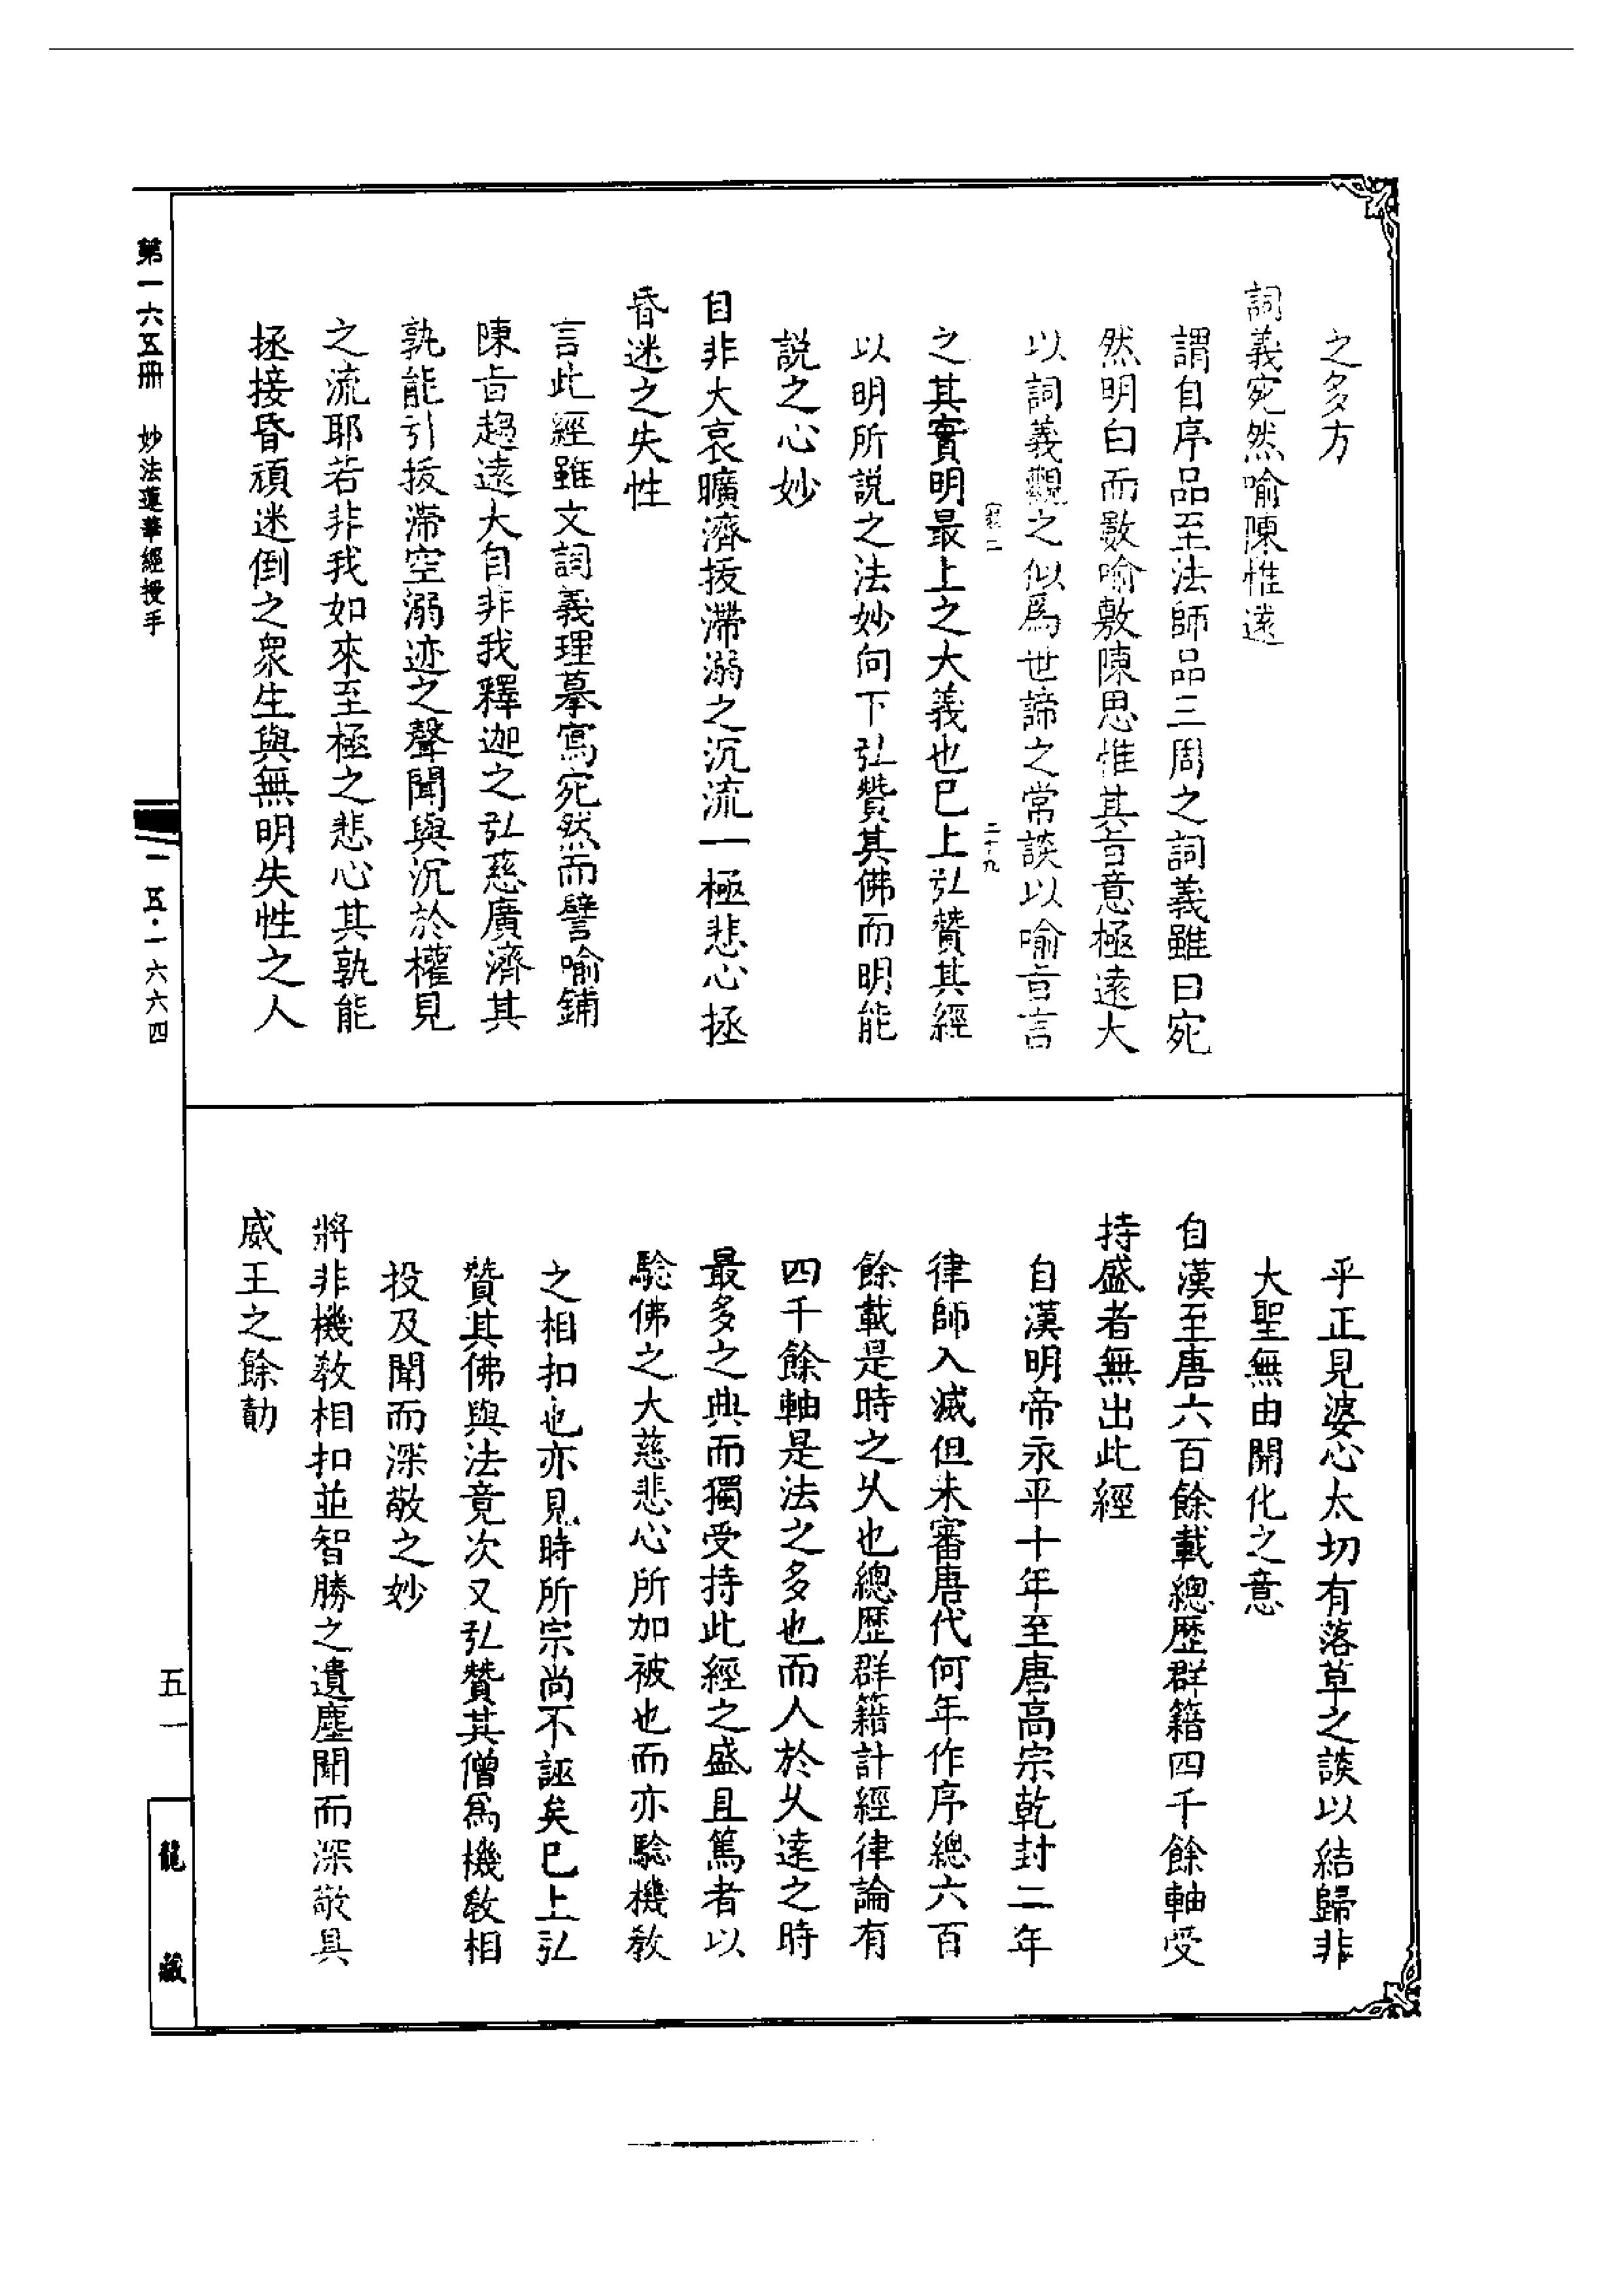 之多方
詞義宛然喻陳惟遠
謂自序品至法師品三周之詞義雖曰宛
然明白而敷喻敷陳思惟其旨意極遠大
以詞義觀之似爲世諦之常談以喻旨言
之其實明最上之大義也已上弘贊其經
以明所説之法妙向下弘贊其佛而明能
説之心妙
自非大哀曠濟拔滯溺之沉流一極悲心拯
昏迷之失性
言此經雖文詞義理摹寫宛然而譬喻鋪
陳旨趨遠大自非我釋迦之弘慈廣濟其
孰能引拔滯空溺迹之聲聞與沉於權見
之流耶若非我如來至極之悲心其孰能
拯接昏頑迷倒之衆生與無明失性之人
二十九
乎正見婆心太切有落草之談以結歸非
大聖無由開化之意
自漢至唐六百餘載總歷群籍四千餘軸受
持盛者無出此經
自漢明帝永平十年至唐高宗乾封二年
律師入滅但未審唐代何年作序總六百
餘載是時之乆也總歷群籍計經律論有
四千餘軸是法之多也而人於乆達之時
最多之典而獨受持此經之盛且篤者以
騐佛之大慈悲心所加被也而亦騐機教
之相扣也亦見時所宗尚不誣矣已上弘
贊其佛與法竟次又弘贊其僧爲機教相
投及聞而深敬之妙
將非機教相扣並智勝之遺塵聞而深敬具
威王之餘勣
第一六五冊　妙法蓮華經授手
一一五·一六六四
五一
龍藏